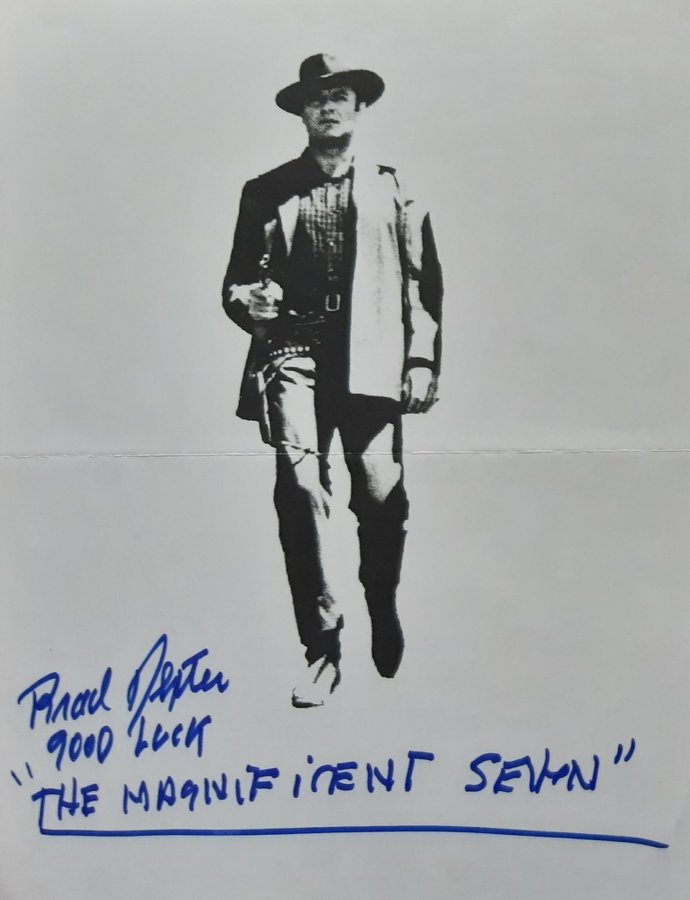 Brad Dexter
GOOD LUCK
"THE MAGNIFICENT SEVEN"